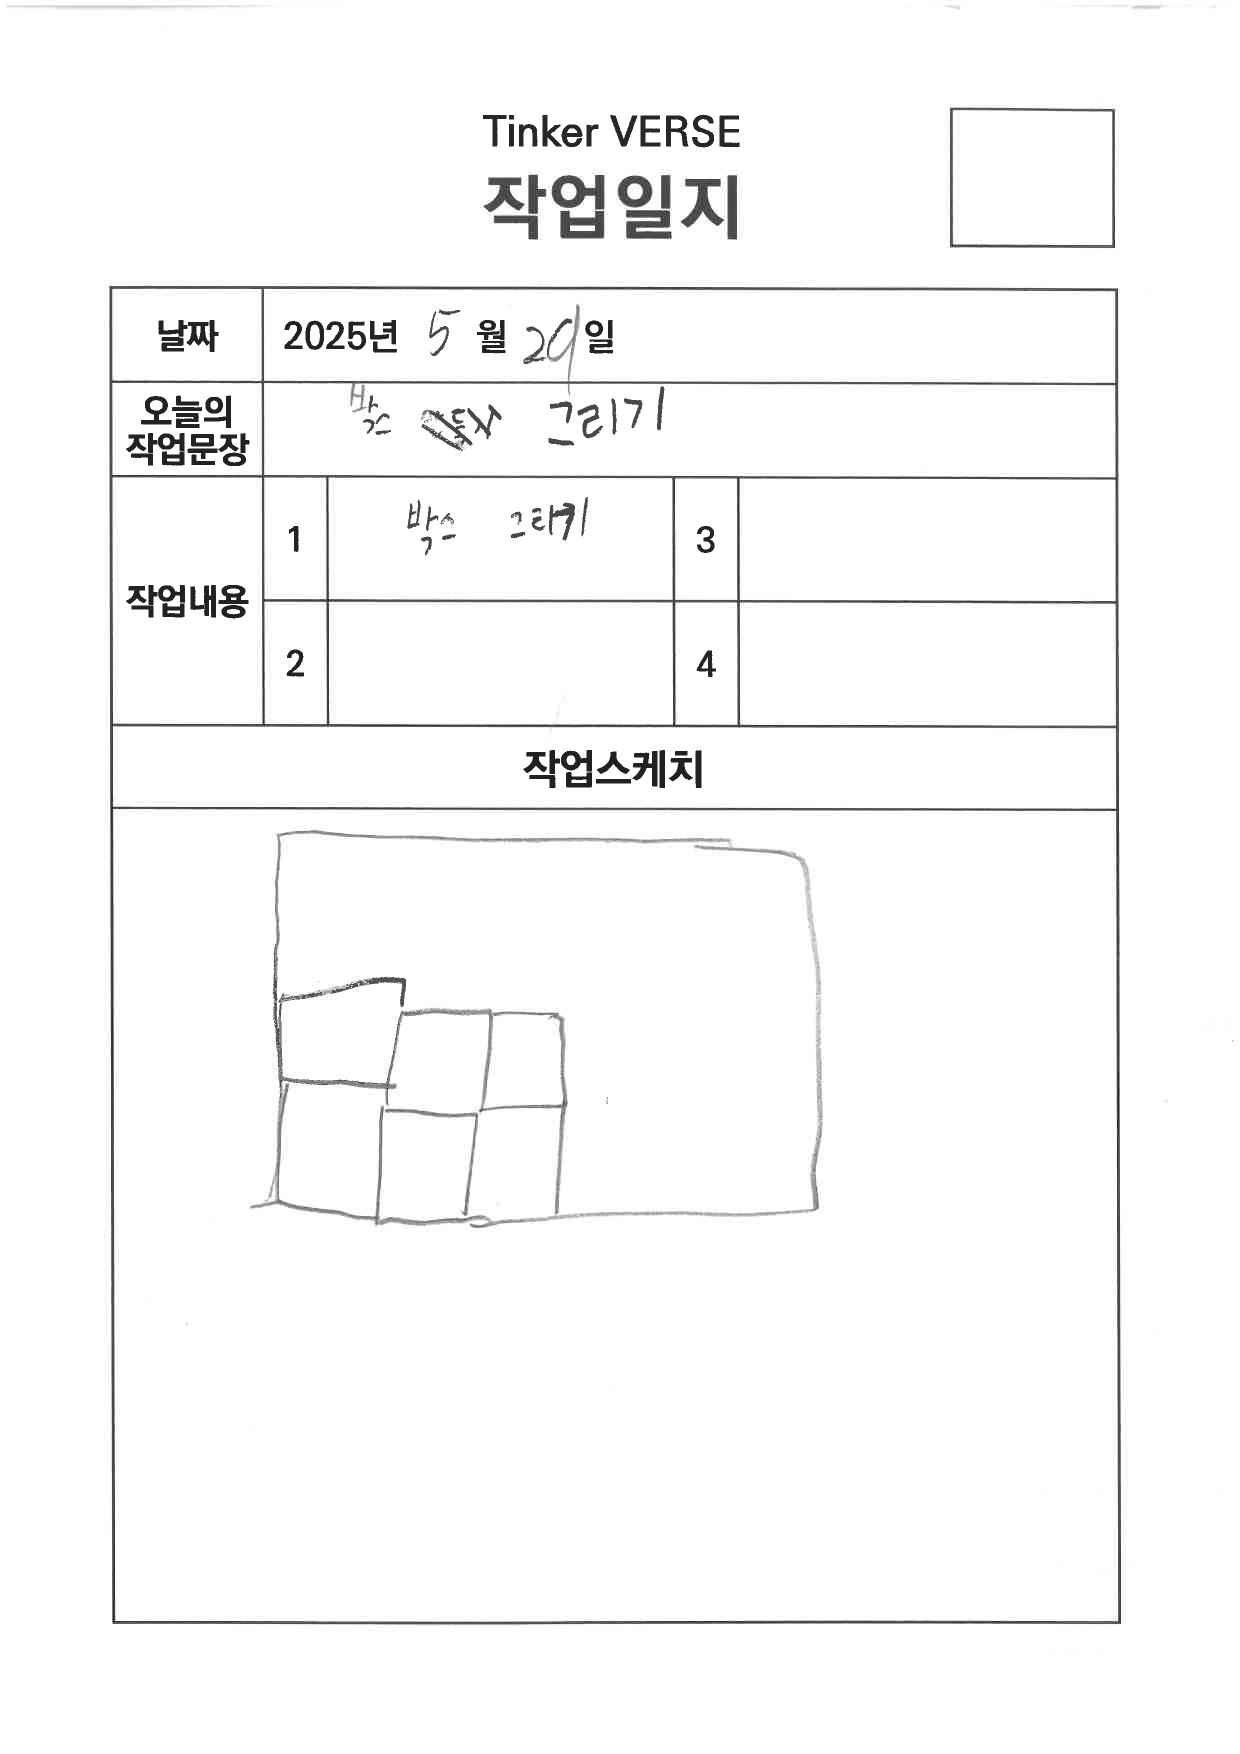 Tinker VERSE
작업일지
날짜 2025년 5월 29일
오늘의 작업문장 박스 그리기
작업내용
1 박스 3
2 4
작업스케치